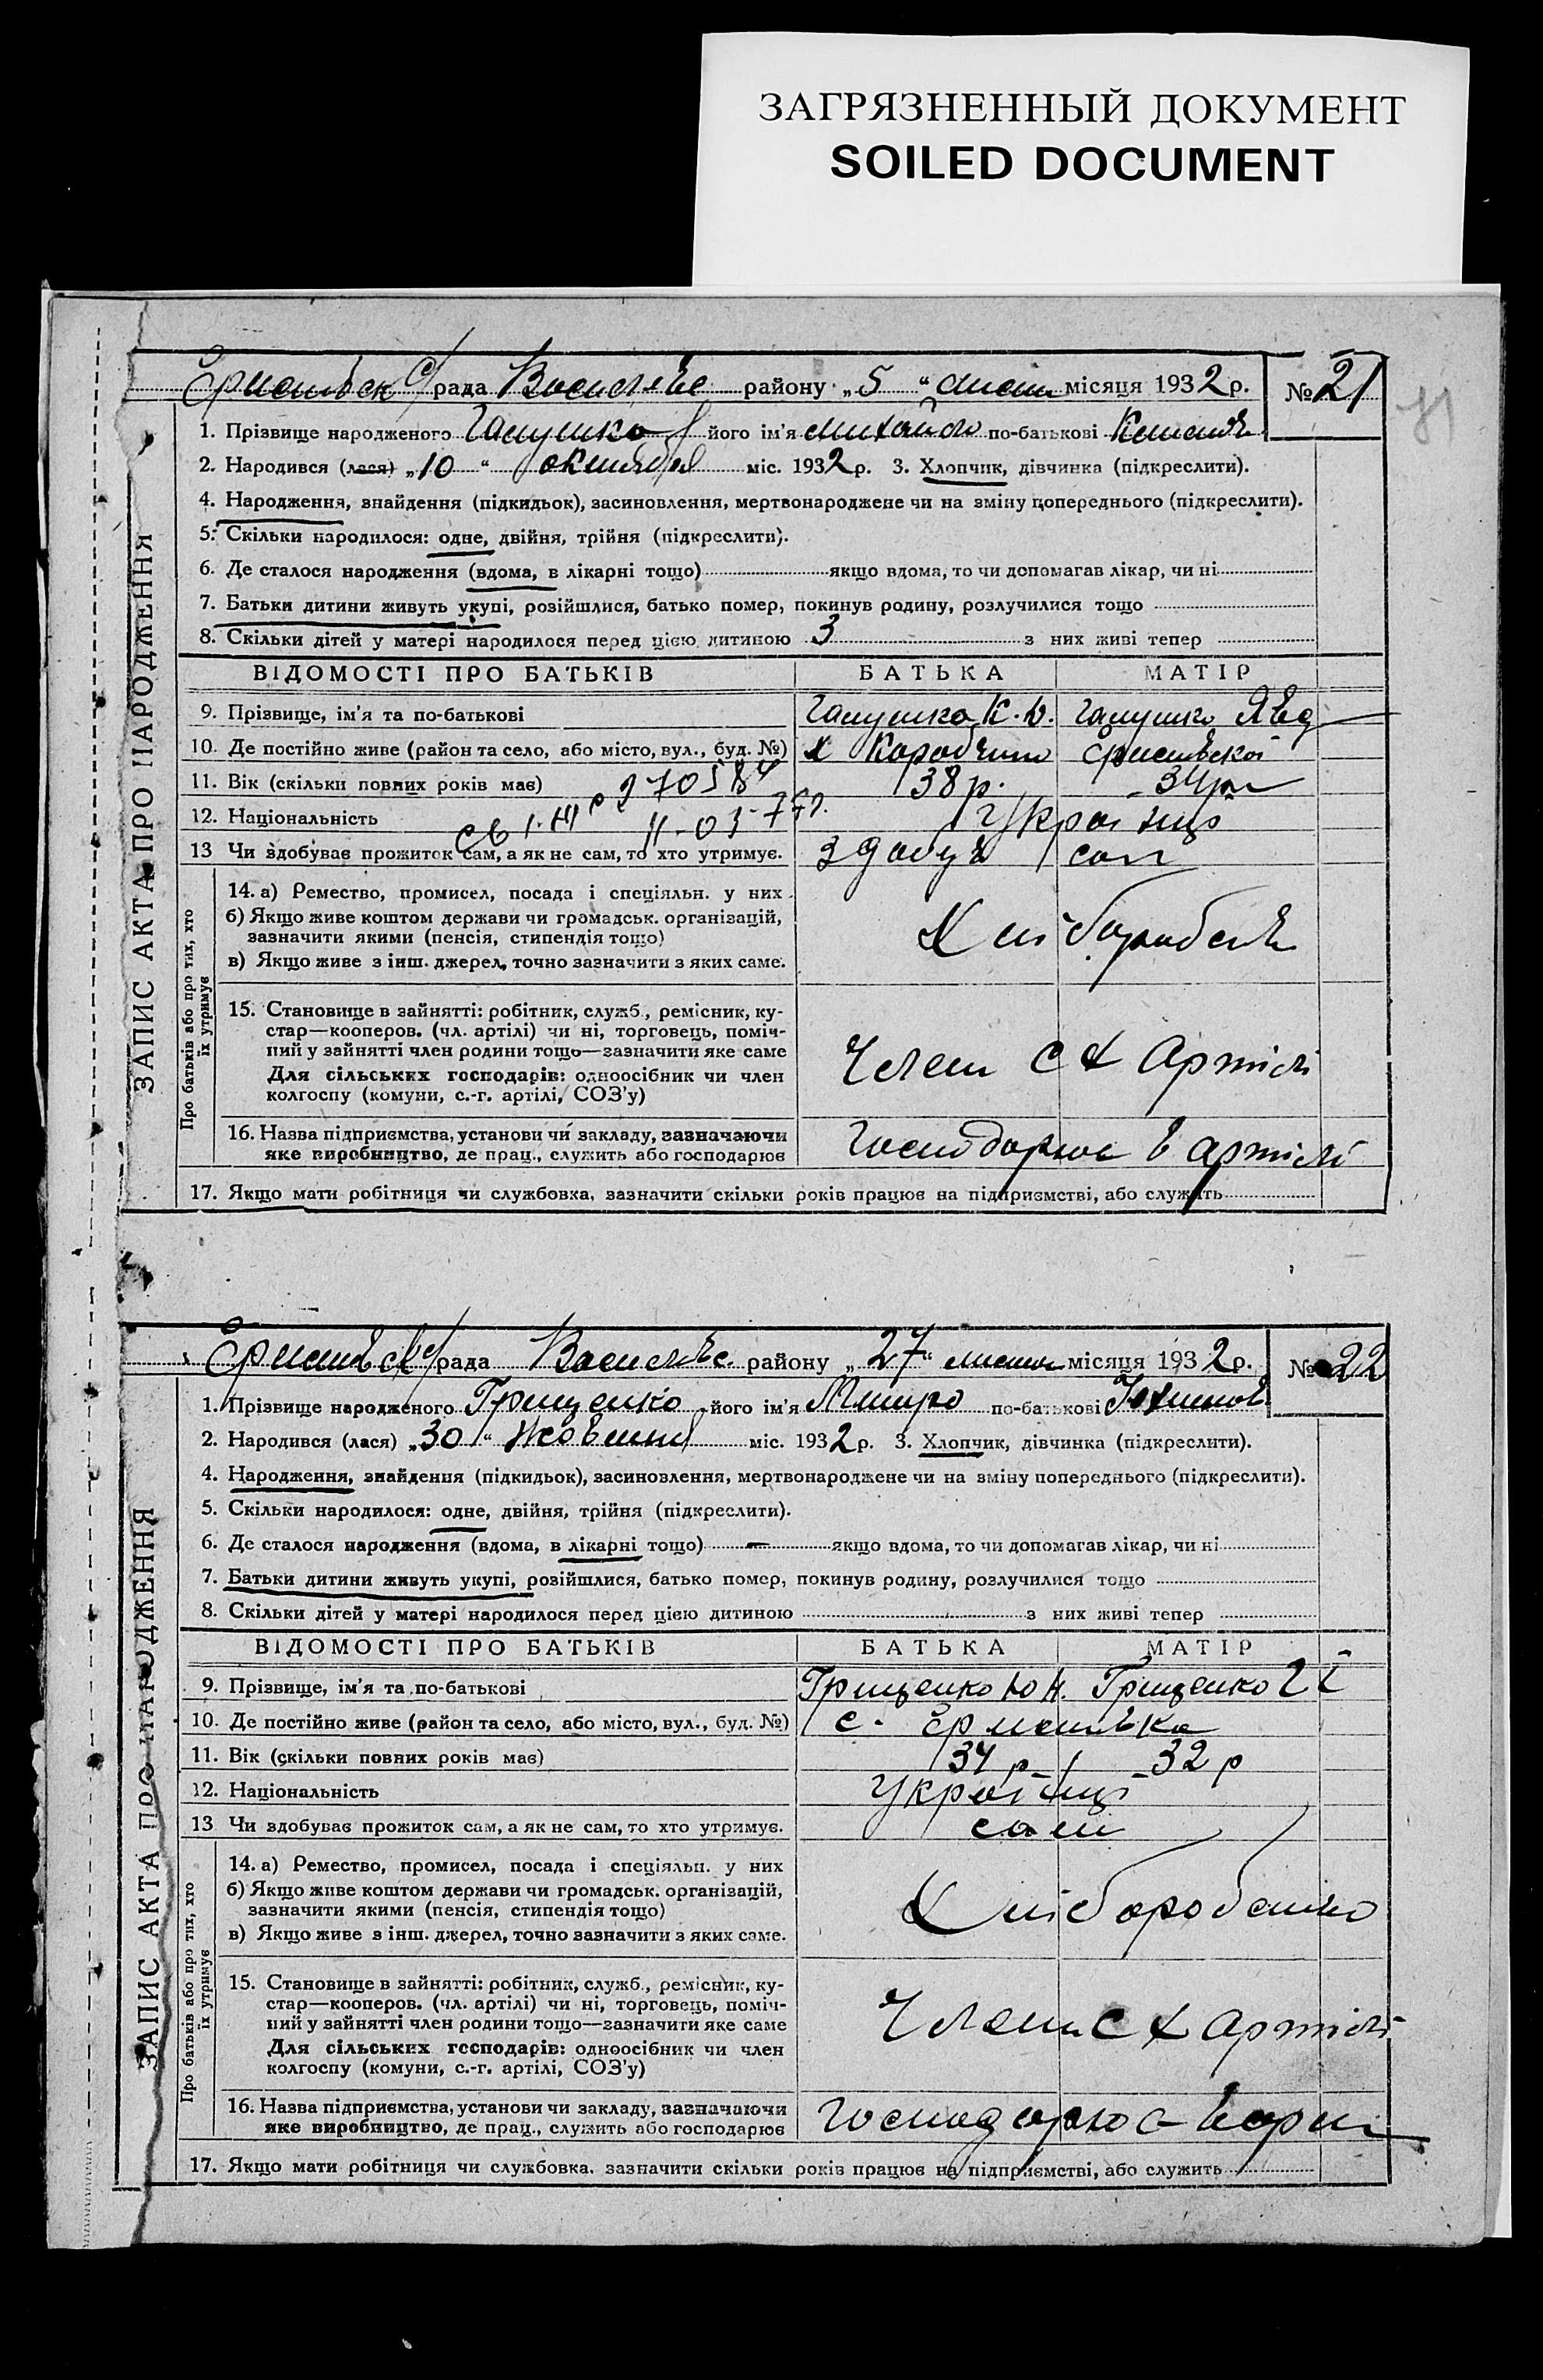 ЗАГРЯЗНЕННЫЙ ДОКУМЕНТ
SOILED DOCUMENT
рада району „5“ місяця 1932 р. № 21
81
ЗАПИС АКТА ПРО НАРОДЖЕННЯ
1. Прізвище народженого Галушко його ім'я Михайло по-батькові
2. Народився (лася) „10“ октября міс. 1932 р. 3. Хлопчик, дівчинка (підкреслити).
4. Народження, знайдення (підкидьок), засиновлення, мертвонароджене чи на зміну попереднього (підкреслити).
5. Скільки народилося: одне, двійня, трійня (підкреслити).
6. Де сталося народження (вдома, в лікарні тощо) якщо вдома, то чи допомагав лікар, чи ні
7. Батьки дитини живуть укупі, розійшлися, батько помер, покинув родину, розлучилися тощо
8. Скільки дітей у матері народилося перед цією дитиною 3 з них живі тепер
ВІДОМОСТІ ПРО БАТЬКІВ БАТЬКА МАТІР
9. Прізвище, ім'я та по-батькові Галушко К. Галушко Явд
10. Де постійно живе (район та село, або місто, вул., буд. №)
11. Вік (скільки повних років має) 38 р. 34 р
270584
12. Національність Українці
11-03-77г.
13 Чи здобуває прожиток сам, а як не сам, то хто утримує. сам
Про батьків або про тих, хто їх утримує
14. а) Ремество, промисел, посада і спеціяльн. у них
б) Якщо живе коштом держави чи громадськ. організацій,
зазначити якими (пенсія, стипендія тощо)
в) Якщо живе з інш. джерел, точно зазначити з яких саме.
15. Становище в зайнятті: робітник, служб., ремісник, ку-
стар—кооперов. (чл. артілі) чи ні, торговець, поміч-
ний у зайнятті член родини тощо—зазначити яке саме
Для сільських господарів: одноосібник чи член
колгоспу (комуни, с.-г. артілі, СОЗ'у)
Член с х артілі
16. Назва підприємства, установи чи закладу, зазначаючи
яке виробництво, де прац., служить або господарює
Господарює в артілі
17. Якщо мати робітниця чи службовка, зазначити скільки років працює на підприємстві, або служить
рада району „27“ місяця 1932 р. № 22
ЗАПИС АКТА ПРО НАРОДЖЕННЯ
1. Прізвище народженого Грищенко його ім'я по-батькові
2. Народився (лася) „30“ Жовтня міс. 1932 р. 3. Хлопчик, дівчинка (підкреслити).
4. Народження, знайдення (підкидьок), засиновлення, мертвонароджене чи на зміну попереднього (підкреслити).
5. Скільки народилося: одне, двійня, трійня (підкреслити).
6. Де сталося народження (вдома, в лікарні тощо) — якщо вдома, то чи допомагав лікар, чи ні
7. Батьки дитини живуть укупі, розійшлися, батько помер, покинув родину, розлучилися тощо
8. Скільки дітей у матері народилося перед цією дитиною з них живі тепер
ВІДОМОСТІ ПРО БАТЬКІВ БАТЬКА МАТІР
9. Прізвище, ім'я та по-батькові Грищенко Ю Н. Грищенко
10. Де постійно живе (район та село, або місто, вул., буд. №) с.
11. Вік (скільки повних років має) 34 р 32 р
12. Національність Українці
13 Чи здобуває прожиток сам, а як не сам, то хто утримує. сами
Про батьків або про тих, хто їх утримує
14. а) Ремество, промисел, посада і спеціяльн. у них
б) Якщо живе коштом держави чи громадськ. організацій,
зазначити якими (пенсія, стипендія тощо)
в) Якщо живе з інш. джерел, точно зазначити з яких саме.
15. Становище в зайнятті: робітник, служб., ремісник, ку-
стар—кооперов. (чл. артілі) чи ні, торговець, поміч-
ний у зайнятті член родини тощо—зазначити яке саме
Для сільських господарів: одноосібник чи член
колгоспу (комуни, с.-г. артілі, СОЗ'у)
Член с х артілі
16. Назва підприємства, установи чи закладу, зазначаючи
яке виробництво, де прац., служить або господарює
Господарює
17. Якщо мати робітниця чи службовка, зазначити скільки років працює на підприємстві, або служить